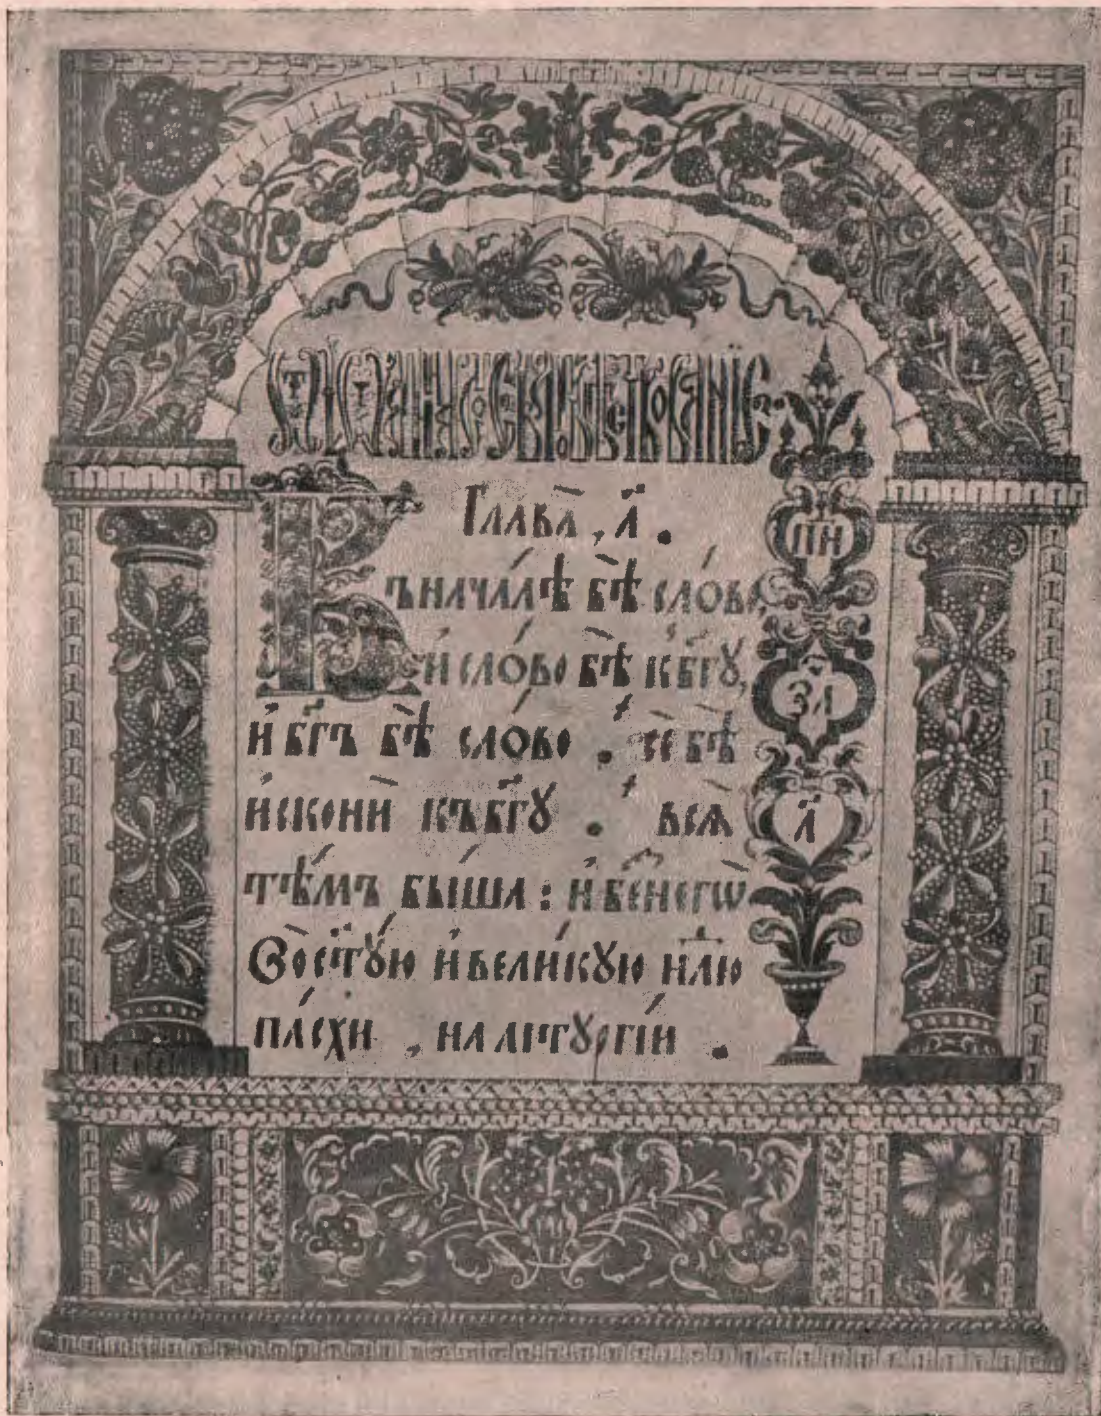 Ѿ Іѡанна ст҃ое бл҃говѣствованїе
Глава̀, а҃ .
Въ нача́лѣ бѣ̀ сло́во,
и҆ сло́во бѣ̀ къ бг҃ꙋ,
и҆ бг҃ъ бѣ̀ сло́во . се́ бѣ̀
и҆сконѝ къ бг҃ꙋ . всѧ̑
тѣ́мъ бы́ша : и҆ бе́негѡ̀
Во ст҃ꙋ́ю и҆ вели́кꙋю нл҃ю
па́схи . на литꙋргі́и .
пн
за҃
а҃